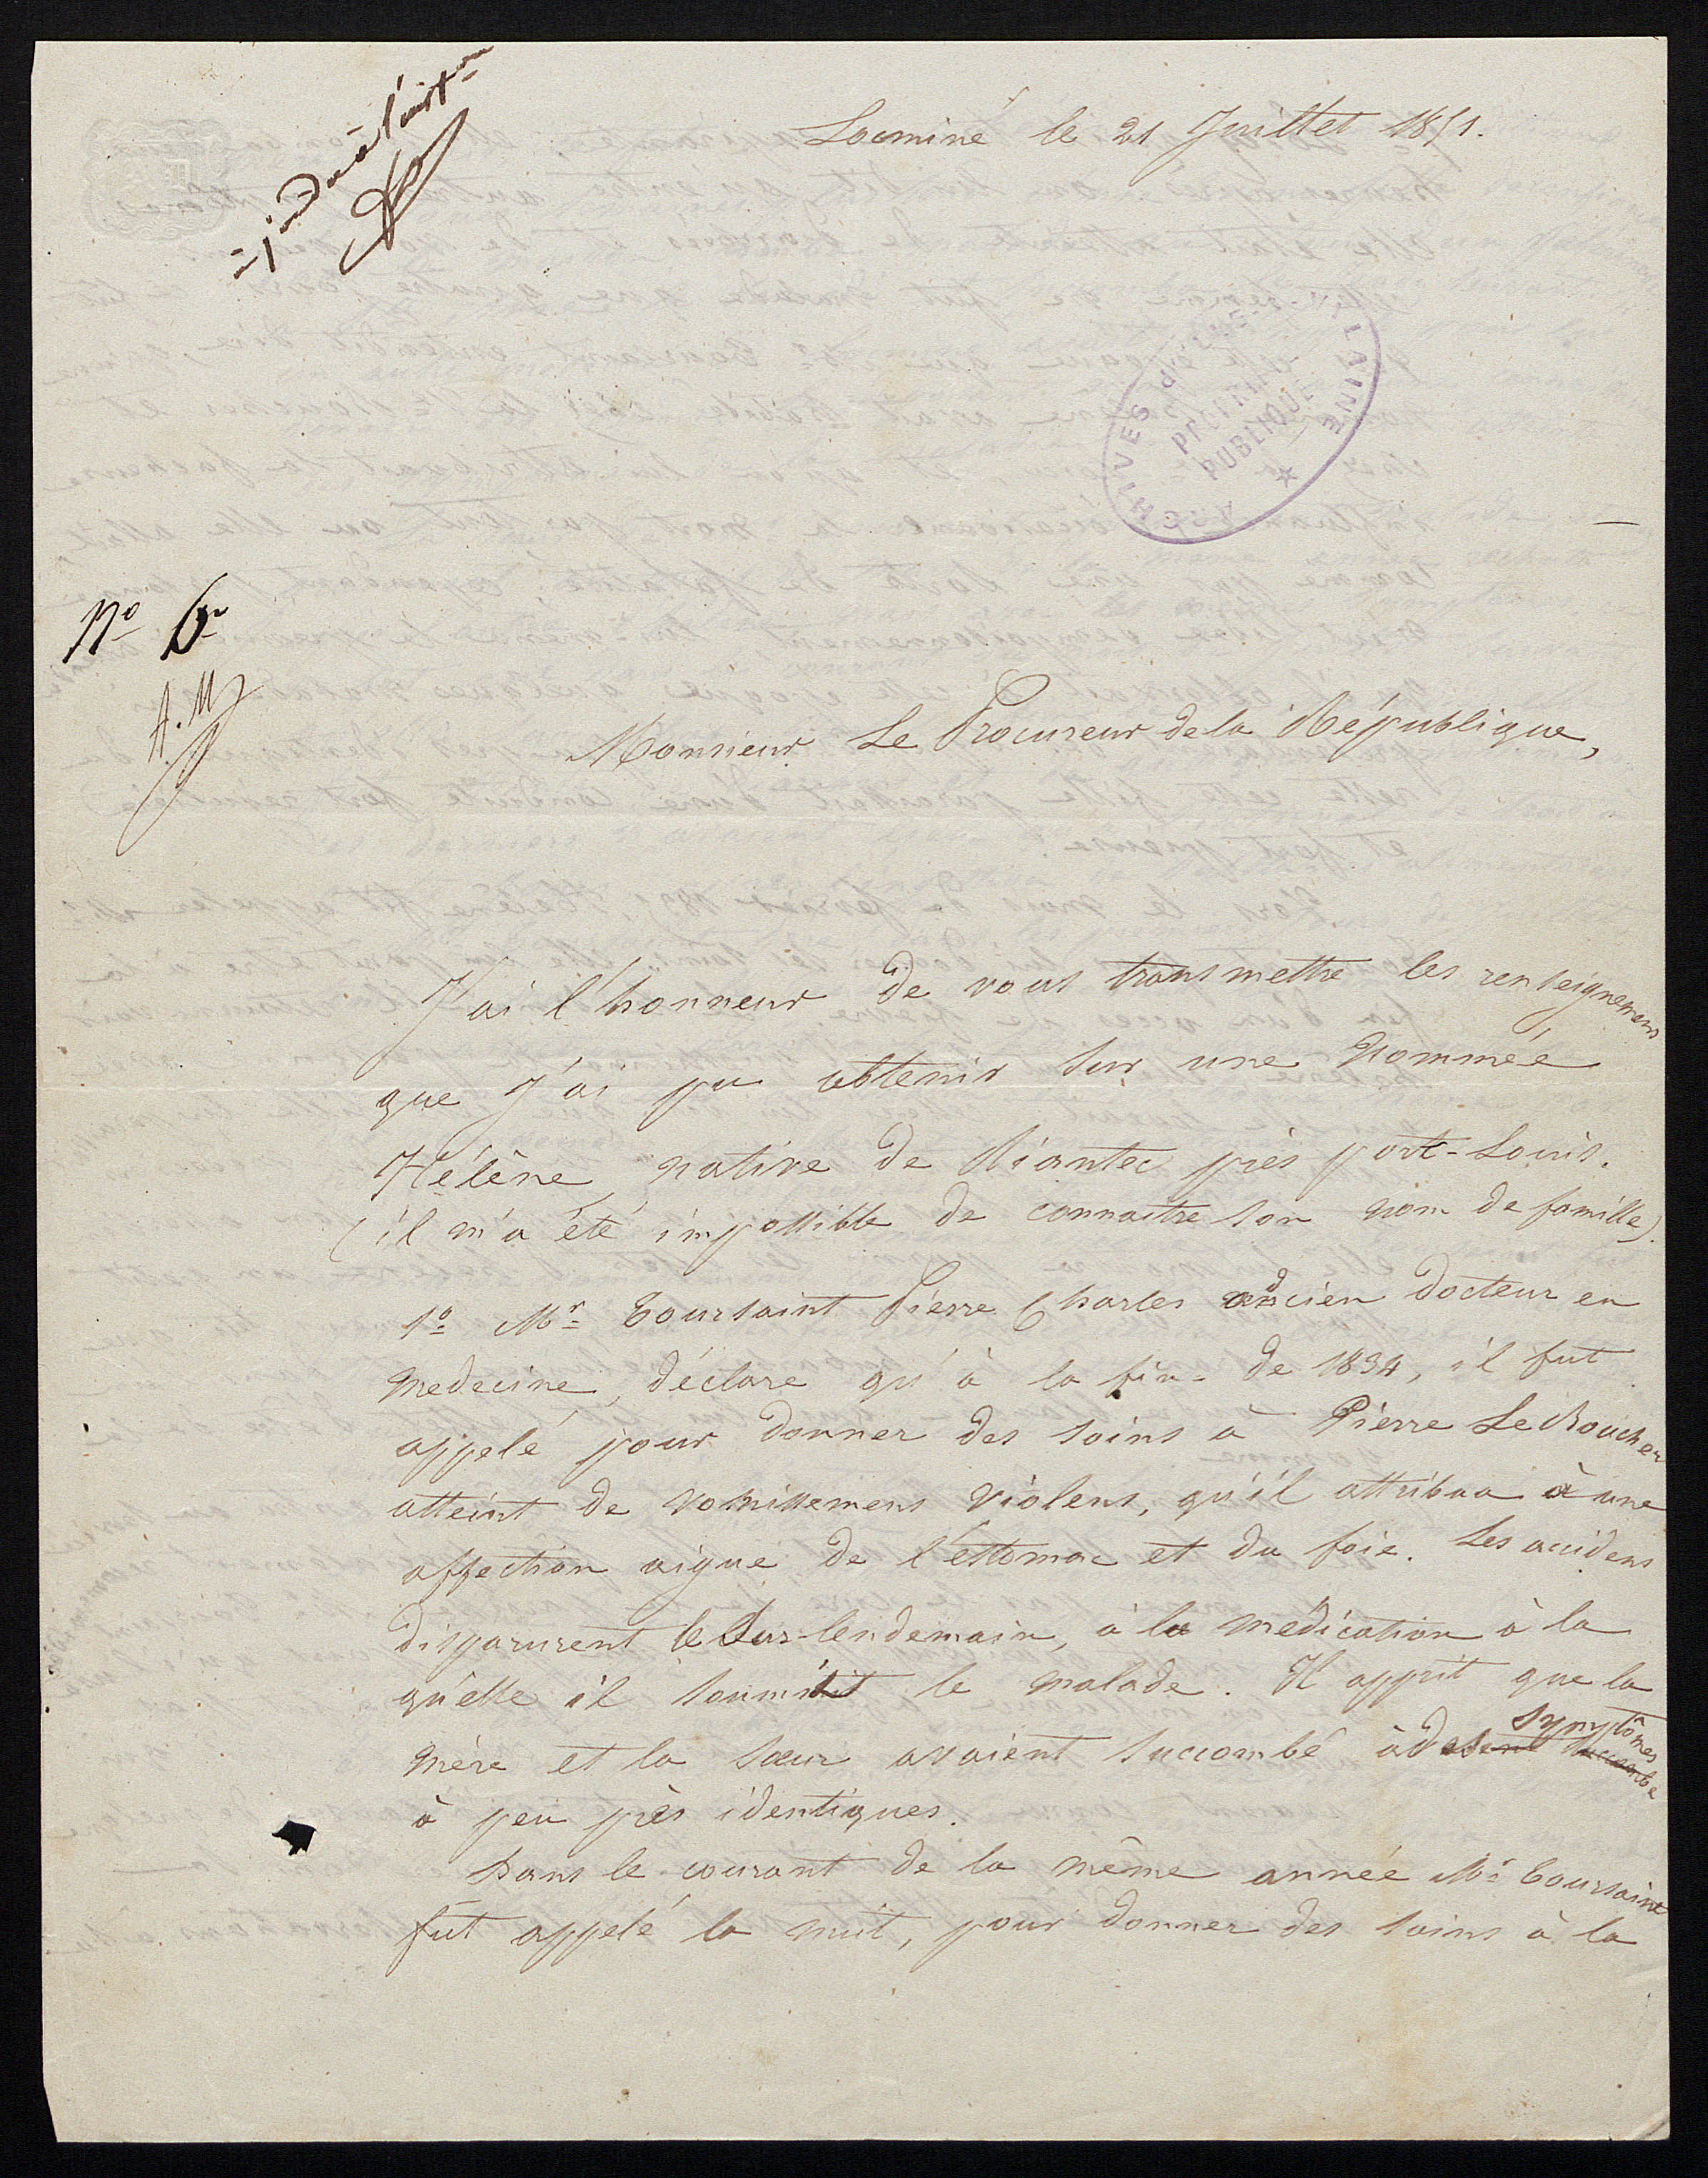 Locminé le 21 Juillet 1851.
ARCHIVES D'ILLE-ET-VILAINE
PROPRIÉTÉ
PUBLIQUE
No 6
A. M
Monsieur Le Procureur de la République,
J'ai l'honneur de vous transmettre les renseignemens
que j'ai pu obtenir sur une nommée
Hélène, native de Riantec près port-Louis.
(il m'a été impossible de connaitre son nom de famille).
1o Mr Toursaint Pierre Charles ancien docteur en
medecine, déclare qu'à la fin de 1834, il fut
appelé pour donner des soins à Pierre Le Boucher
atteint de vomissemens violens, qu'il attribua à une
affection aigue de l'estomac et du foie. Les accidens
disparurent le sur-lendemain, à la médication à la
qu'elle il soumit le malade. Il apprit que la
mère et la sœur avaient succombé à des symptômes
à peu près identiques.
Dans le courant de la même année Mr Toursaint
fut appelé la nuit, pour donner des soins à la